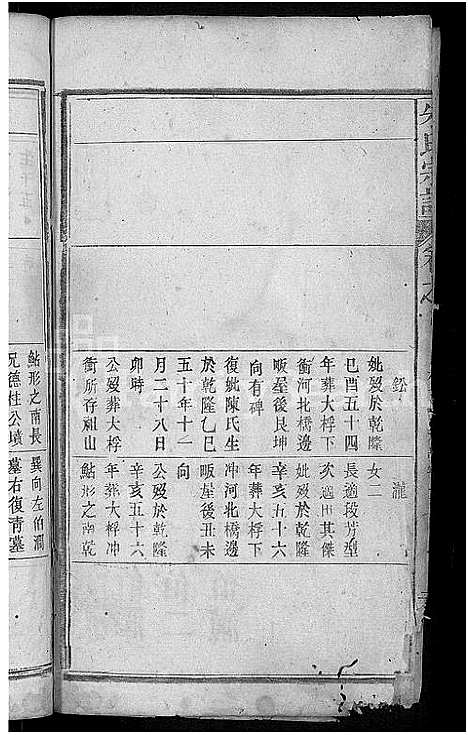 氏宗譜 卷之
瀧
妣歿於乾隆
己酉五十四
年葬大桴下
衝河北橋邊
畈屋後艮坤
向有碑
復娶陳氏生
於乾隆乙巳
五十年十一
月二十八日
卯時
公歿葬大桴
衝所存祖山
女二
長適段芳型
次適田其傑
妣歿於乾隆
辛亥五十六
年葬大桴下
冲河北橋邊
畈屋後丑未
向
公歿於乾隆
辛亥五十六
年葬大桴冲
鮎形之南乾
鮎形之南長
兄德柱公墳
巽向左伯澗
墓右復靑墓